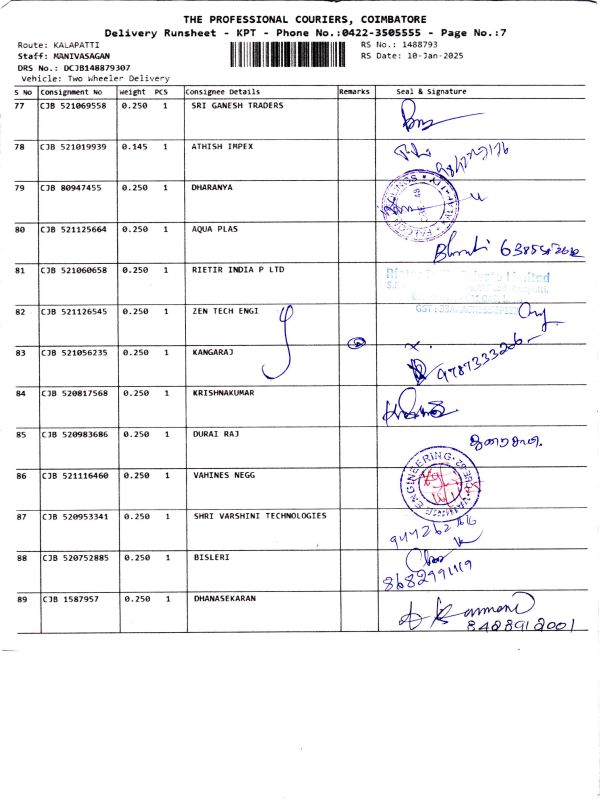 THE PROFESSIONAL COURIERS, COIMBATORE
Delivery Runsheet - KPT - Phone No.:0422-3505555 - Page No.:7
Route: KALAPATTI RS No.: 1488793
Staff: MANIVASAGAN RS Date: 10-Jan-2025
DRS No.: DCJB148879307
Vehicle: Two Wheeler Delivery
S No Consignment No Weight PCS Consignee Details Remarks Seal & Signature
77 CJB 521069558 0.250 1 SRI GANESH TRADERS
78 CJB 521019939 0.145 1 ATHISH IMPEX
79 CJB 80947455 0.250 1 DHARANYA
80 CJB 521125664 0.250 1 AQUA PLAS
Bharati
81 CJB 521060658 0.250 1 RIETIR INDIA P LTD
Limited
GST:
82 CJB 521126545 0.250 1 ZEN TECH ENGI
83 CJB 521056235 0.250 1 KANGARAJ
9787333206
84 CJB 520817568 0.250 1 KRISHNAKUMAR
85 CJB 520983686 0.250 1 DURAI RAJ
86 CJB 521116460 0.250 1 VAHINES NEGG
ENGINEERING
87 CJB 520953341 0.250 1 SHRI VARSHINI TECHNOLOGIES
88 CJB 520752885 0.250 1 BISLERI
89 CJB 1587957 0.250 1 DHANASEKARAN
8428912001